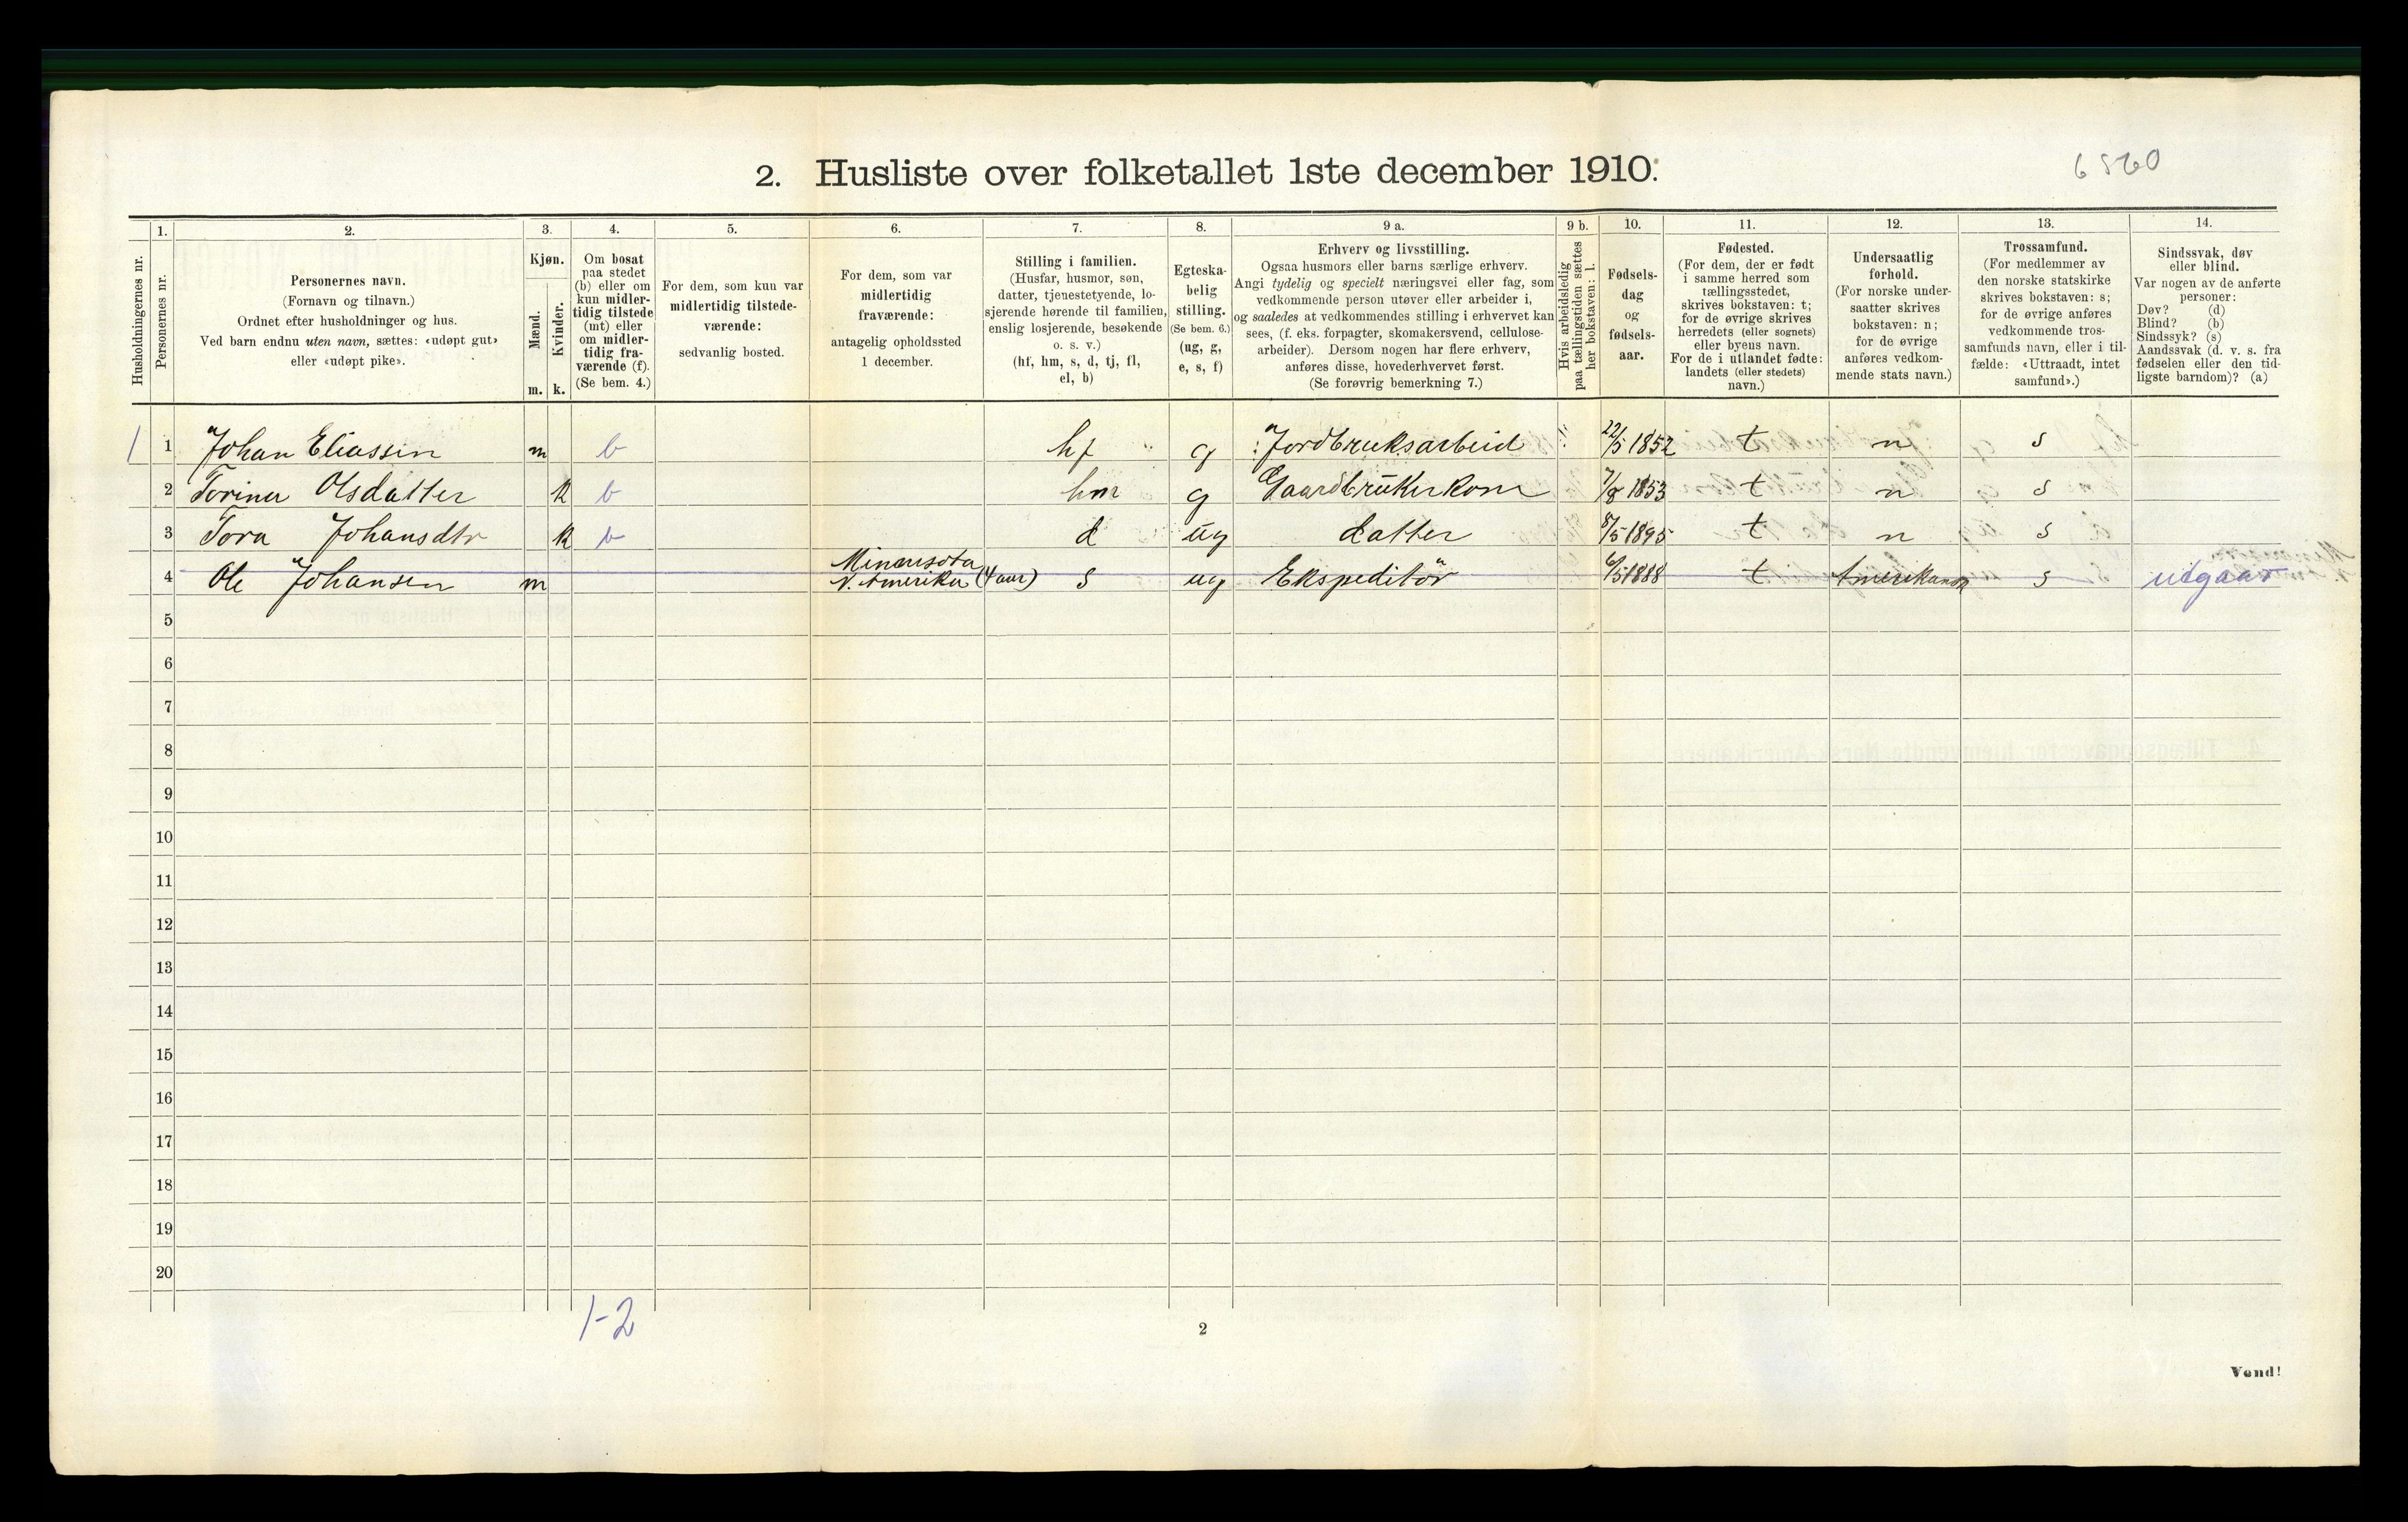 6560
2. Husliste over folketallet 1ste december 1910.
Husholdningernes nr.
1.
Personernes nr.
2.
Personernes navn.
(Fornavn og tilnavn.)
Ordnet efter husholdninger og hus.
Ved barn endnu uten navn, sættes: «udøpt gut»
eller «udøpt pike».
3.
Kjøn.
Mænd.
m.
Kvinder.
k.
4.
Om bosat
paa stedet
(b) eller om
kun midler-
tidig tilstede
(mt) eller
om midler-
tidig fra-
værende (f).
(Se bem. 4.)
5.
For dem, som kun var
midlertidig tilstede-
værende:
sedvanlig bosted.
6.
For dem, som var
midlertidig
fraværende:
antagelig opholdssted
1 december.
7.
Stilling i familien.
(Husfar, husmor, søn,
datter, tjenestetyende, lo-
sjerende hørende til familien,
enslig losjerende, besøkende
o. s. v.)
(hf, hm, s, d, tj, fl,
el, b)
8.
Egteska-
belig
stilling.
(Se bem. 6.)
(ug, g,
e, s, f)
9 a.
Erhverv og livsstilling.
Ogsaa husmors eller barns særlige erhverv.
Angi tydelig og specielt næringsvei eller fag, som
vedkommende person utøver eller arbeider i,
og saaledes at vedkommendes stilling i erhvervet kan
sees, (f. eks. forpagter, skomakersvend, cellulose-
arbeider). Dersom nogen har flere erhverv,
anføres disse, hovederhvervet først.
(Se forøvrig bemerkning 7.)
9 b.
Hvis arbeidsledig
paa tællingstiden sættes
her bokstaven: l.
10.
Fødsels-
dag
og
fødsels-
aar.
11.
Fødested.
(For dem, der er født
i samme herred som
tællingsstedet,
skrives bokstaven: t;
for de øvrige skrives
herredets (eller sognets)
eller byens navn.
For de i utlandet fødte:
landets (eller stedets)
navn.)
12.
Undersaatlig
forhold.
(For norske under-
saatter skrives
bokstaven: n;
for de øvrige
anføres vedkom-
mende stats navn.)
13.
Trossamfund.
(For medlemmer av
den norske statskirke
skrives bokstaven: s;
for de øvrige anføres
vedkommende tros-
samfunds navn, eller i til-
fælde: «Uttraadt, intet
samfund».)
14.
Sindssvak, døv
eller blind.
Var nogen av de anførte
personer:
Døv? (d)
Blind? (b)
Sindssyk? (s)
Aandssvak (d. v. s. fra
fødselen eller den tid-
ligste barndom)? (a)
1 1 Johan Eliassen m b hf g Jordbruksarbeid 22/5 1852 t n s
2 Torine Olsdatter k b hm g Gaardbrukerkone 7/8 1853 t n s
3 Tora Johansdtr k b d ug datter 8/5 1895 t n s
4 Ole Johansen m Minensota N. Amerika (4 aar) s ug Ekspeditör 6/5 1888 t Amerikansk s utgaar
5
6
7
8
9
10
11
12
13
14
15
16
17
18
19
20
1-2
2
Vend!